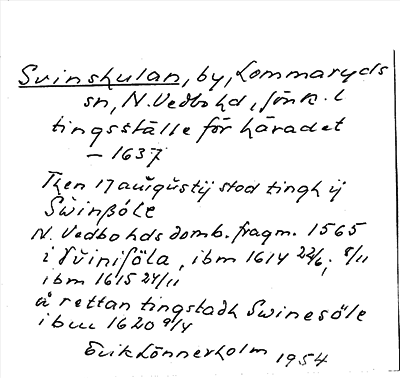 Svinskulan, by, Lommaryds
sn, N. Vedbo hd, Jönk. l
tingsställe för häradet
– 1637
Then 17 augustij stod tingh ij
Swinßöle
N. Vedbo hds domb. fragm. 1565
i Svinisöla, ibm 1614 22/6, 8/11
ibm 1615 24/11
å rettan tingstadh Swinesöle
ibm 1620 9/4
Erik Lönnerholm 1954